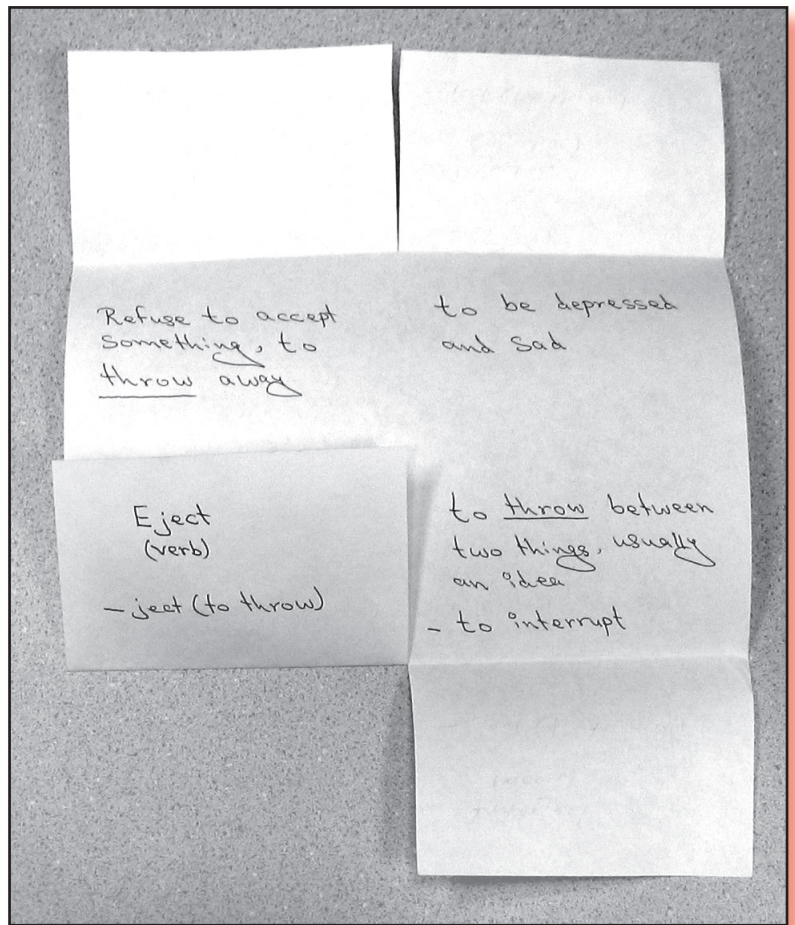 Refuse to accept
something, to
throw away
to be depressed
and sad
Eject
(verb)
- ject (to throw)
to throw between
two things, usually
an idea
- to interrupt